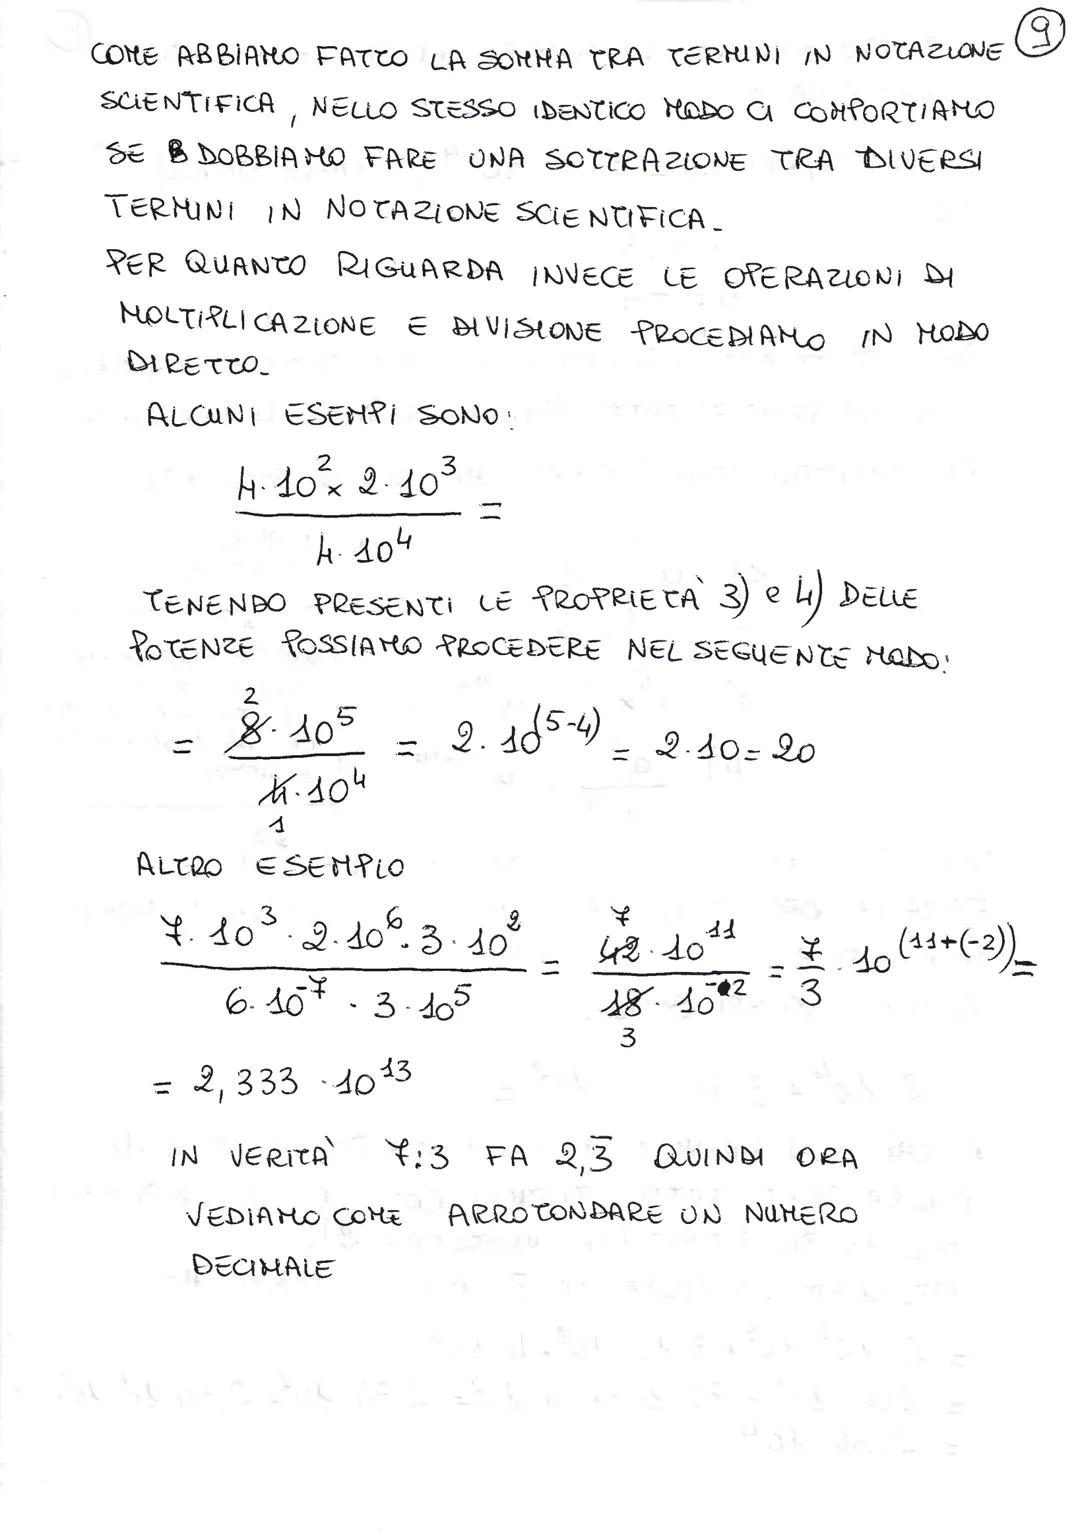 9
COME ABBIAMO FATTO LA SOMMA TRA TERMINI IN NOTAZIONE
SCIENTIFICA, NELLO STESSO IDENTICO MODO CI COMPORTIAMO
SE DOBBIAMO FARE UNA SOTTRAZIONE TRA DIVERSI
TERMINI IN NOTAZIONE SCIENTIFICA.
PER QUANTO RIGUARDA INVECE LE OPERAZIONI DI
MOLTIPLICAZIONE E DIVISIONE PROCEDIAMO IN MODO
DIRETTO.
ALCUNI ESEMPI SONO:
4·10² × 2·10³ =
4·10⁴
TENENDO PRESENTI LE PROPRIETÀ 3) e 4) DELLE
POTENZE POSSIAMO PROCEDERE NEL SEGUENTE MODO:
2
= 8·10⁵ = 2·10⁽⁵⁻⁴⁾ = 2·10 = 20
4·10⁴
1
ALTRO ESEMPIO
7
7·10³·2·10⁶·3·10² = 42·10¹¹ = 7/3·10^(11+(-2)) =
6·10⁻⁷·3·10⁵ 18·10⁻²
3
= 2,333·10¹³
IN VERITÀ 7:3 FA 2,3̅ QUINDI ORA
VEDIAMO COME ARROTONDARE UN NUMERO
DECIMALE